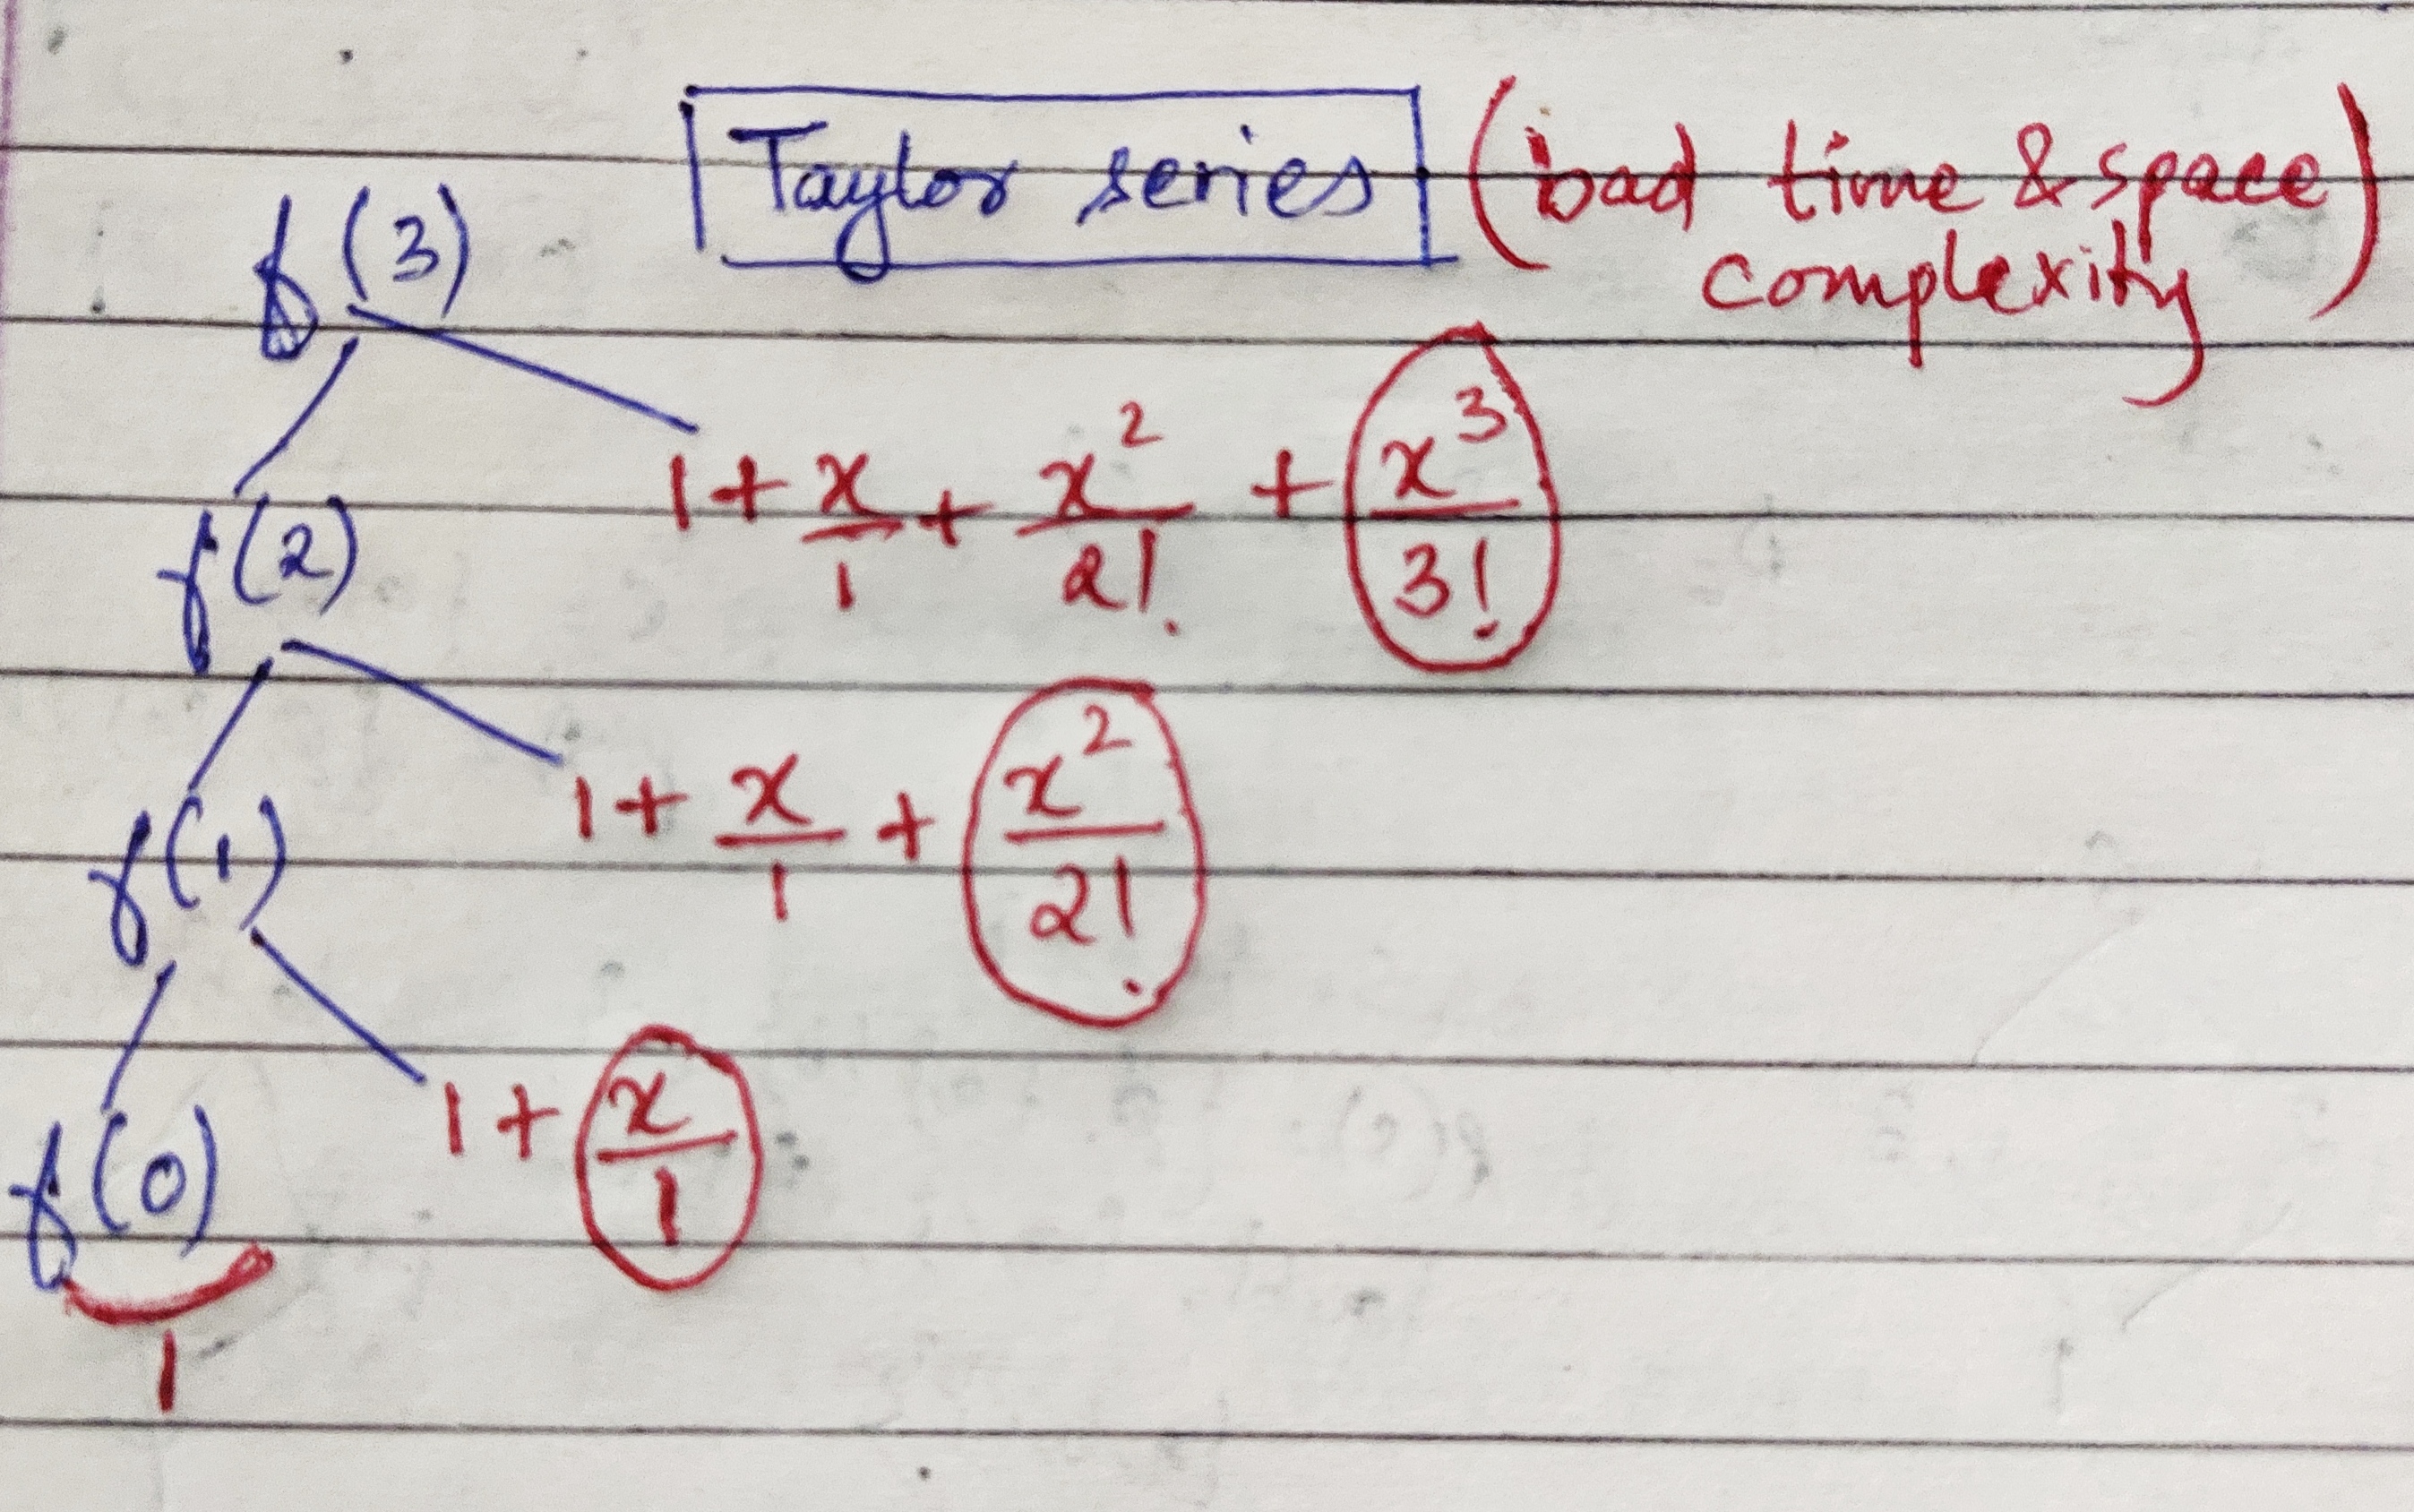 Taylor series (bad time & space
complexity)
f(3)
1 + x/1 + x²/2! + x³/3!
f(2)
1 + x/1 + x²/2!
f(1)
1 + x/1
f(0)
1